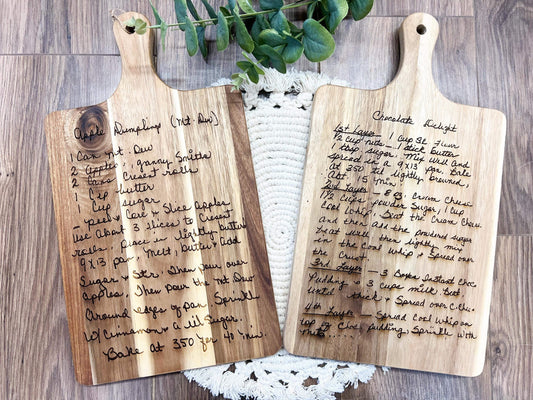 Apple Dumplings (Mt. Dew)
1 Can Mt. Dew
2 Apples, granny Smiths
2 Cans Cresent rolls
1 Cup butter
1 Cup sugar
- peel & Core & Slice Apples
Use About 3 slices to Cresent
rolls, place in lightly butter
9x13 pan, Melt, butter, add
Sugar & stir. Then pour over
Apples, Then pour the Mt. Dew
Around edges of pan Sprinkle
w/Cinnamon & a lil Sugar.
Bake At 350 for 40 min.
Chocolate Delight
1st Layer - 1 Cup SR flour
1/2 cup nuts - 1 stick butter
1 tbs sugar. Mix well and
spread in a 9x13 pan. Bake
at 350 til lightly browned,
Abt. 15 min
2nd Layer - 8 oz. Cream Cheese
1 1/2 Cups powder Sugar, 1 cup
Cool whip. Beat the Cream Cheese
and add the powdered sugar
beat well then lightly mix
in the Cool Whip & Spread over
the Crust.
3rd Layer - 3 Boxes Instant Choc
Pudding & 3 cups milk Beat
until thick & Spread over c.chs.
4th Layer - Spread Cool Whip on
top of Choc pudding, Sprinkle with
nuts